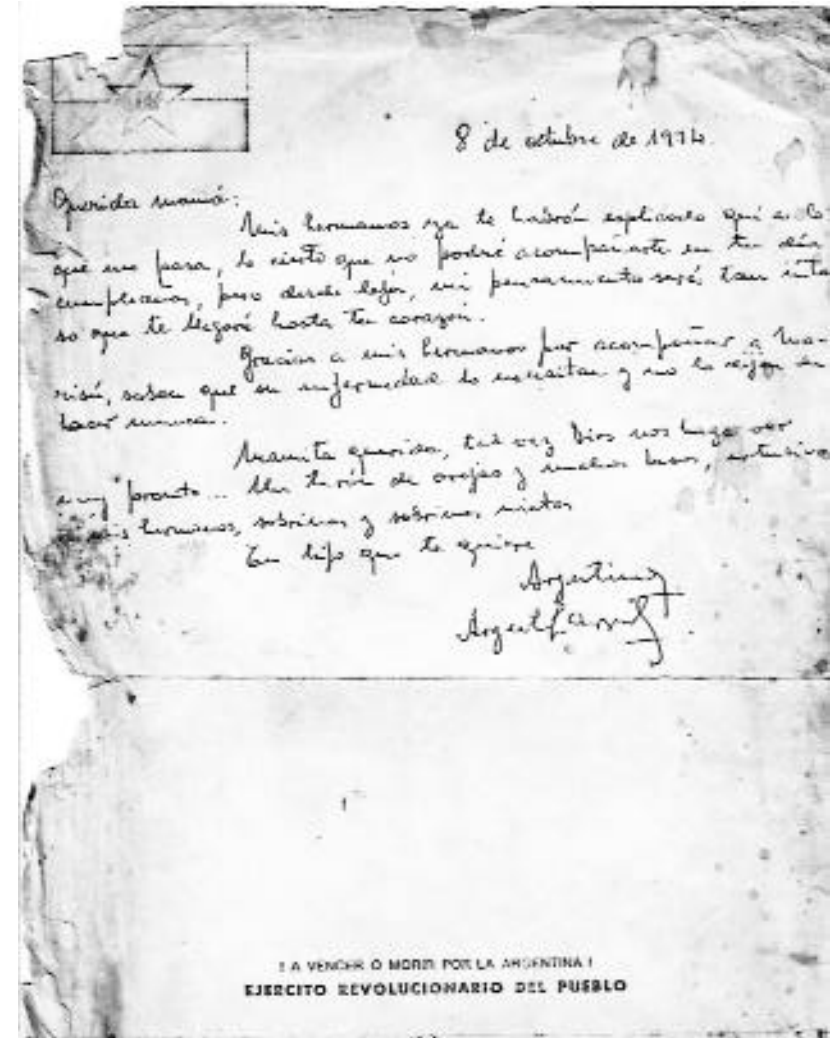 ERP
8 de octubre de 1974.
Querida mamá:
Mis hermanos ya te habrán explicado qué es lo
que me pasa, lo siento que no podré acompañarte en tu día
cumpleaños, pero desde lejos, mi pensamiento será tan inten
so que te llegará hasta tu corazón.
Gracias a mis hermanos por acompañar a Ma-
risú, saben que su enfermedad lo necesitan y no lo dejen de
hacer nunca.
Mamita querida, tal vez Dios nos haga ver
muy pronto... Un tirón de orejas y muchos besos, extensivos
a mis hermanos, sobrinos y sobrinos nietos
Tu hijo que te quiere
Argentino
! A VENCER O MORIR POR LA ARGENTINA !
EJERCITO REVOLUCIONARIO DEL PUEBLO